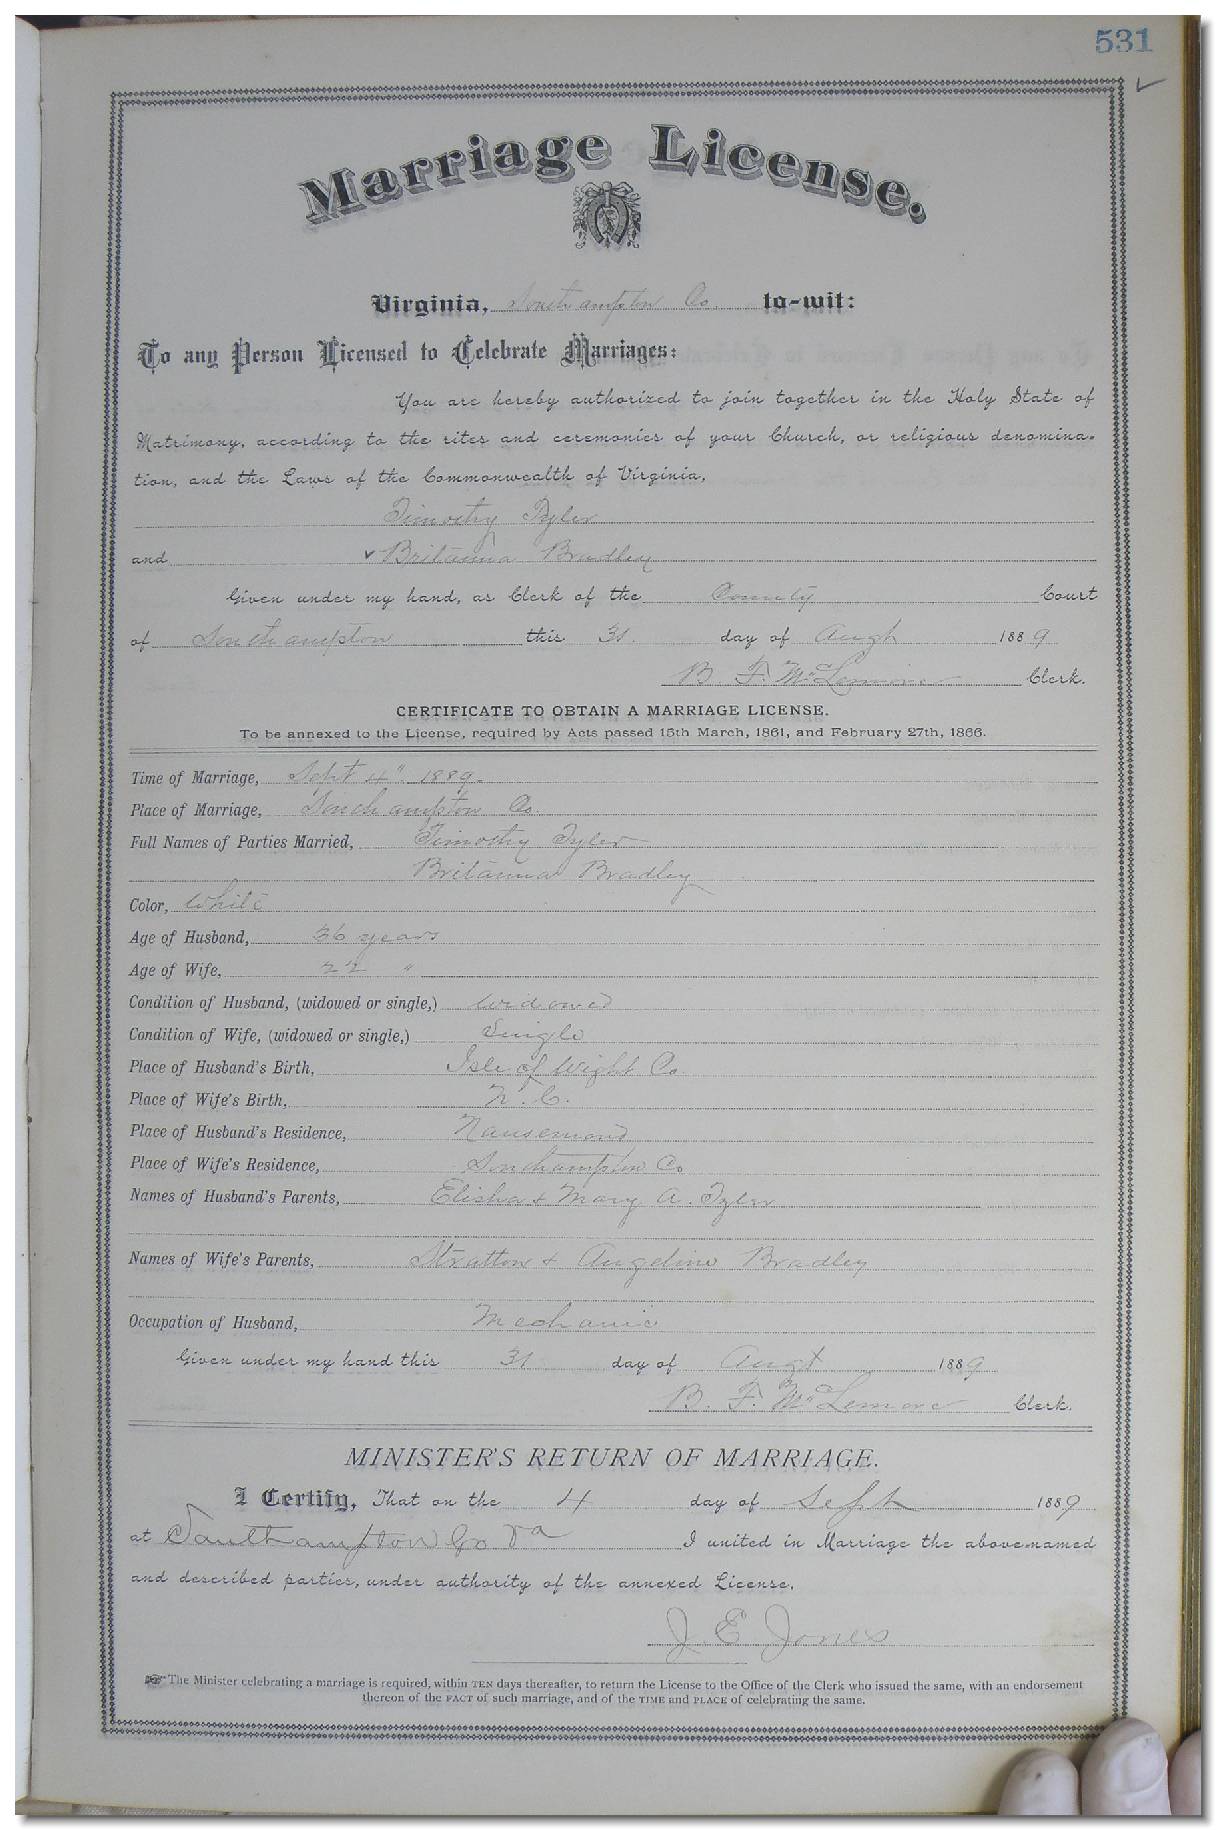 531
Marriage License.
Virginia, Southampton Co. to-wit:
To any Person Licensed to Celebrate Marriages:
You are hereby authorized to join together in the Holy State of
Matrimony, according to the rites and ceremonies of your Church, or religious denomina-
tion, and the Laws of the Commonwealth of Virginia,
Timothy Tyler
and Britanna Bradley
Given under my hand, as Clerk of the County Court
of Southampton this 31. day of Augt 1889
B. F. McLemore Clerk.
CERTIFICATE TO OBTAIN A MARRIAGE LICENSE.
To be annexed to the License, required by Acts passed 15th March, 1861, and February 27th, 1866.
Time of Marriage, Sept 4" 1889.
Place of Marriage, Southampton Co.
Full Names of Parties Married, Timothy Tyler
Britanna Bradley
Color, White
Age of Husband, 36 years
Age of Wife, 22 "
Condition of Husband, (widowed or single,) widowed
Condition of Wife, (widowed or single,) Single
Place of Husband's Birth, Isle of Wight Co
Place of Wife's Birth, N. C.
Place of Husband's Residence, Nansemond
Place of Wife's Residence, Southampton Co
Names of Husband's Parents, Elisha & Mary A. Tyler
Names of Wife's Parents, Stratton & Angeline Bradley
Occupation of Husband, Mechanic
Given under my hand this 31 day of Augt 1889
B. F. McLemore Clerk.
MINISTER'S RETURN OF MARRIAGE.
I Certify, That on the 4 day of Sept 1889
at Southampton Co Va I united in Marriage the above-named
and described parties, under authority of the annexed License.
J. E Jones
The Minister celebrating a marriage is required, within TEN days thereafter, to return the License to the Office of the Clerk who issued the same, with an endorsement
thereon of the FACT of such marriage, and of the TIME and PLACE of celebrating the same.